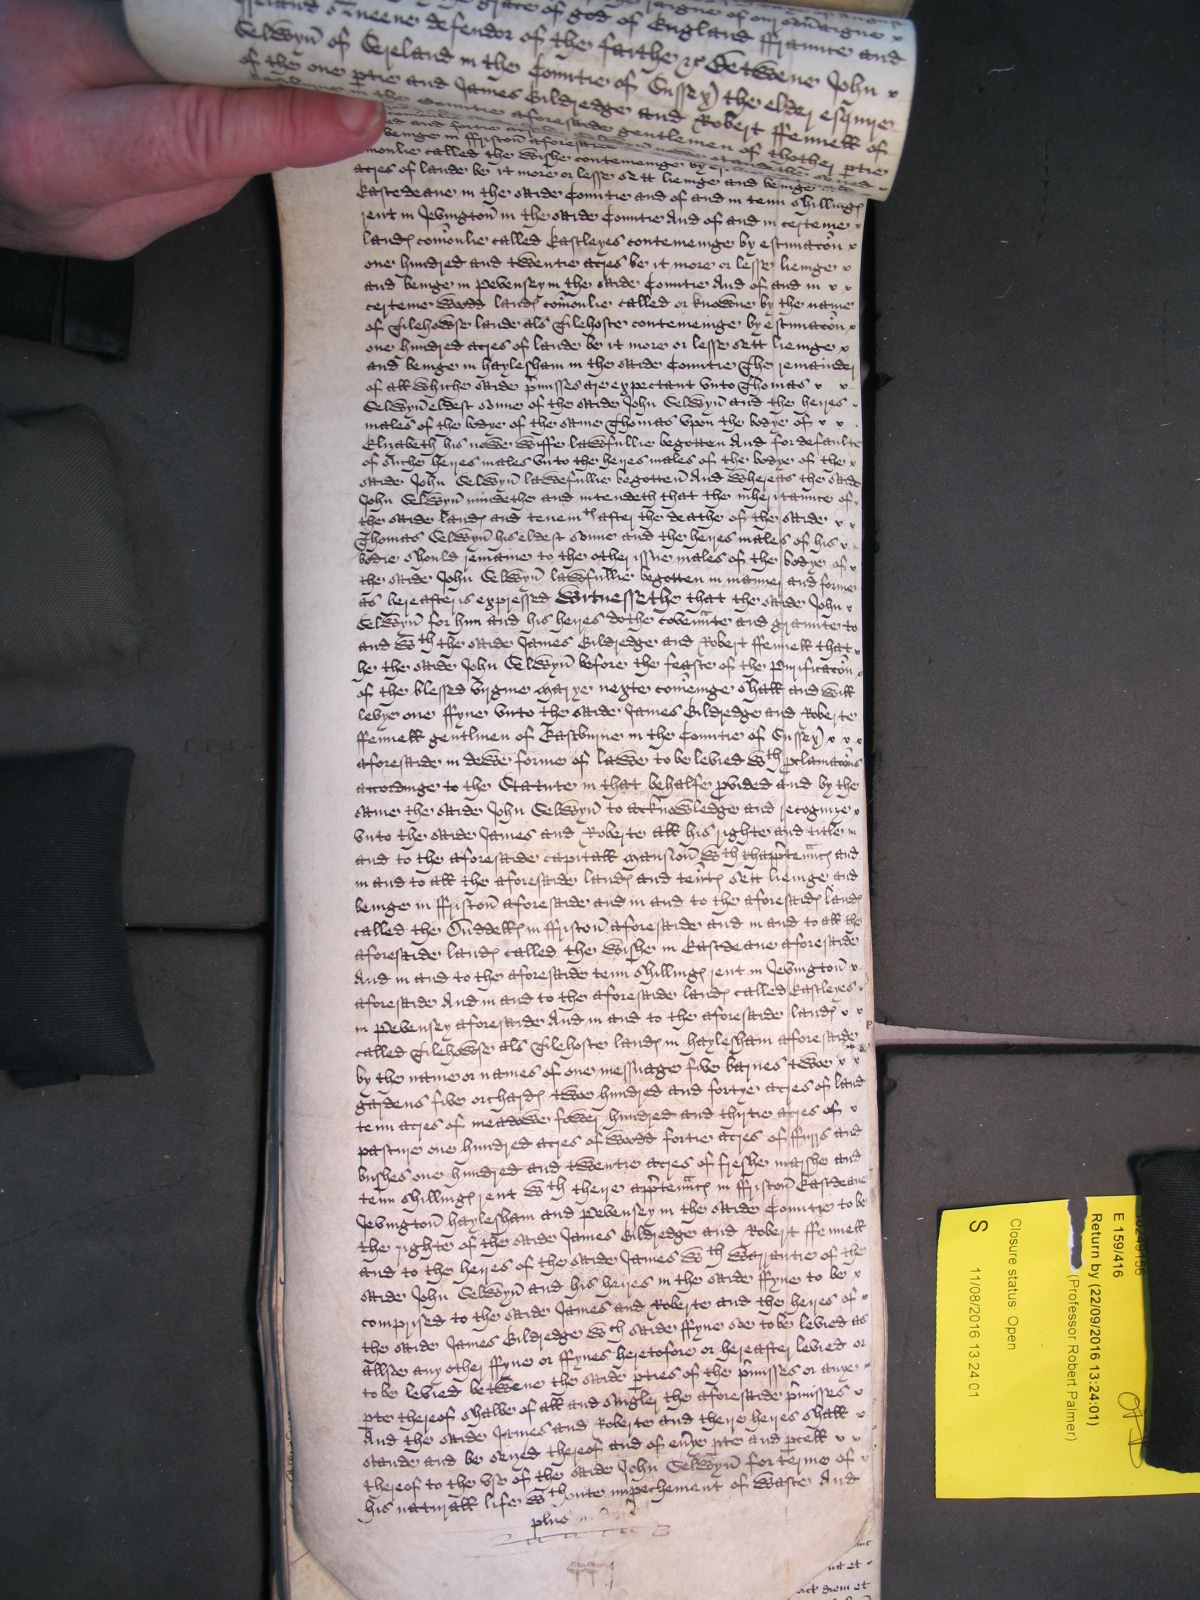 grace of god of England ffraunce and
Ireland Queene defendor of the faithe &c Betwene John x
Selwyn of ffriston in the Countie of Sussex the elder esquier
of the one ptie and James Eildredge and Robert ffennell of
in the Countie aforesaide gentlemen of thother ptie
beinge in ffriston aforesaide
monlie called the Wishe conteineinge by
acres of lande be it more or lesse sett lieinge and beinge
Eastdeane in the saide Countie and of and in tenn shillings
rent in Jevington in the saide Countie And of and in certeine x
lands comonlie called Eastleyes conteineinge by estimacon x
one hundred and twentie acres be it more or lesse lieinge x
and beinge in Pevensey in the saide Countie And of and in x x
certeine wood lands comonlie called or knowne by the name
of Gilehowse lande als Gilehoste conteineinge by estimacon x
one hundred acres of lande be it more or lesse sett lieinge x
and beinge in haylesham in the saide Countie The remainder
of all whiche saide pmisses are expectant unto Thomas x x
Selwyn eldest sonne of the saide John Selwyn and the heires
males of the bodye of the same Thomas upon the bodye of x x
Elizabeth his nowe wiffe lawfullie begotten And for defaulte
of suche heires males unto the heires males of the bodye of the x
saide John Selwyn lawefullie begotten And Whereas the saide
John Selwyn mindethe and intendeth that the inheritaunce of x
the saide lands and tenemts after the deathe of the saide x x
Thomas Selwyn his eldest sonne and the heires males of his x
bodie should remaine to the other issue males of the bodye of x
the saide John Selwyn lawfullie begotten in manner and forme
as hereafter is expressed Witnessethe that the saide John x
Selwyn for him and his heires dothe covennte and graunte to
and wth the saide James Eildredge and Robert ffennell that x
he the saide John Selwyn before the feaste of the Purificacon x
of the blessed virgine Marye nexte comeinge shall and will
levye one ffyne unto the saide James Eildredge and Roberte
ffennell gentlmen of Eastburne in the Countie of Sussex x x x
aforesaide in dewe forme of lawe to be levied wth pclamacons
accordinge to the Statute in that behalfe pvided and by the
same the saide John Selwyn to acknowledge and recognize x
unto the saide James and Roberte all his righte and title in
and to the aforesaide capitall mansion wth thappurtennces and
in and to all the aforesaide lands and tents sett lieinge and
beinge in ffriston aforesaide and in and to the aforesaide lands
called the in ffriston aforesaide and in and to all the
aforesaide lands called the Wishe in Eastdeane aforesaide
And in and to the aforesaide tenn shillings rent in Jevington x
aforesaide And in and to the aforesaide lands called Eastleyes x
in Pevensey aforesaide And in and to the aforesaide lands x x
called Gilehowse als Gilehoste lands in haylesham aforesaide
by the name or names of one messuage five barnes twoe x x
gardens five orchards twoe hundred and fortye acres of land
tenn acres of meadowe fower hundred and thirtie acres of x
pasture one hundred acres of wood fortie acres of ffurrs and
bushes one hundred and twentie acres of freshe marshe and
tenn shillings rent wth theire apptennces in ffriston Eastdeane
Jevington haylesham and Pevensey in the saide Countie to be
the righte of the saide James Eildredge and Robert ffennell
and to the heires of the saide James wth warrantie of the
saide John Selwyn and his heires in the saide ffyne to be x
comprised to the saide James and Roberte and the heires of x
the saide James Eildredge wch saide ffyne soe to be levied as
allsoe any other ffyne or ffynes heretofore or hereafter levied or
to be levied betwene the saide pties of the pmisses or anye x
pte thereof shalbe of all and singler the aforesaide pmisses x
And the saide James and Roberte and theire heires shall x
stande and be seised thereof and of everye pte and pcell x x
thereof to the use of the saide John Selwyn for terme of x
his naturall life wthoute impechement of waste And
plus
act diem et
E 159/416
Return by (22/09/2016 13:24:01)
(Professor Robert Palmer)
Closure status: Open
S
11/08/2016 13:24:01